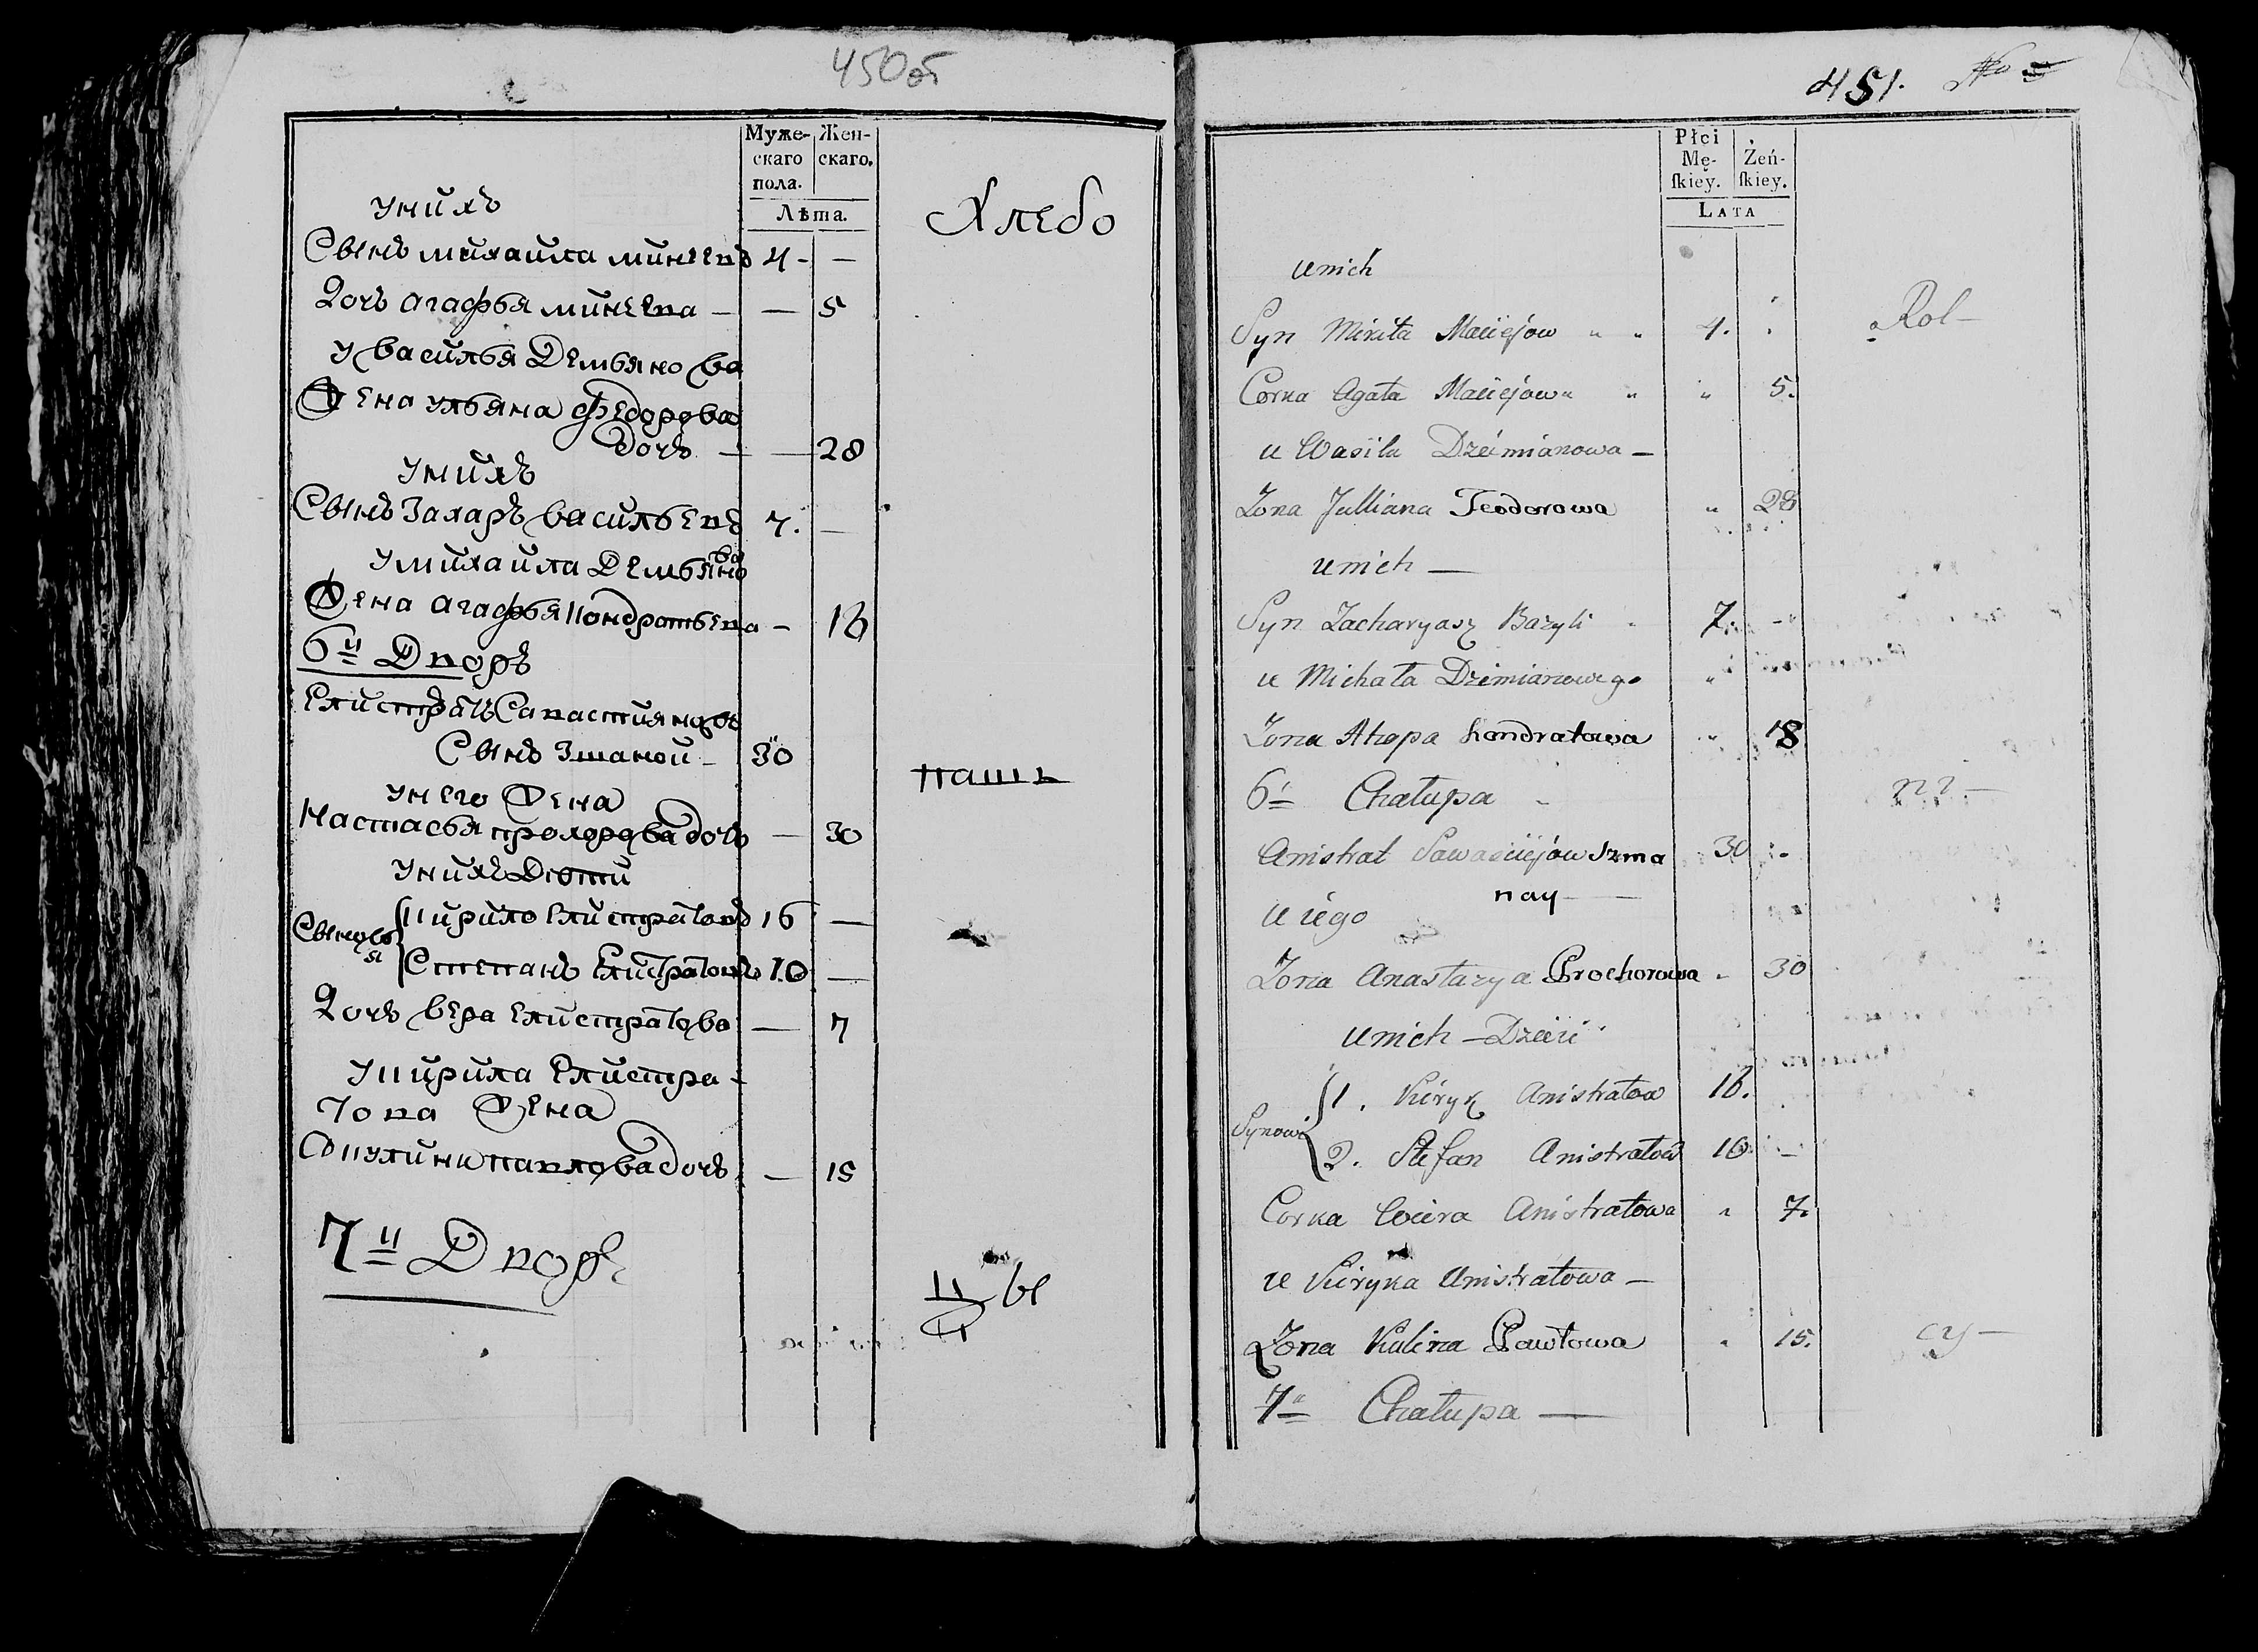 450об
Муже-
скаго
пола.
Жен-
скаго.
Лѣта.
Хлебо
у нихъ
Сынъ михайла минеевъ 4 - —
Дочь агафья минеева — — 5
у василья Демьянова
Жена ульяна федорова
дочь — — 28
у нихъ
Сынъ Захаръ васильевъ 7. —
у михайла Демьянова
Жена агафья кондратьева — 18
6й Дворъ
Елистратъ Савастияновъ
Сынъ Шманой — 30
у него Жена
Настасья прохорова дочь — 30
паш
у нихъ Дѣти
Сыновья
Кирило Елистратовъ 16 —
Степанъ Елистратовъ 10 —
Дочь вера елистратова — 7
у Кирила Елистра-
това Жена
Окулина павлова дочь — 15
7й Дворъ
цы
451. No
Płci
Mę-
ſkiey.
Żeń-
ſkiey.
LATA
u nich
Syn Mikita Maciejow " " 4. "
Rol—
Corka Agata Maciejowa " " 5.
u Wasila Dziemianowa —
Zona Julliana Teodorowa " 28
u nich —
Syn Zacharyasz Bazyli " 7. - "
u Michała Dziemianowego "
Zona Ahapa Kondratowa " 18
6a Chałupa -
ni —
Anistrat Sawasciejow Szma 30 -
nay —
u iego
Zona Anastazya Prochorowa " 30
u nich — Dzieci
Synowie
1. Kiryk Anistratow 16.
2. Stefan Anistratow 10 —
Corka Wiera Anistratowa " 7.
u Kiryka Anistratowa —
Zona Kulina Pawłowa " 15.
cy —
7a Chałupa —